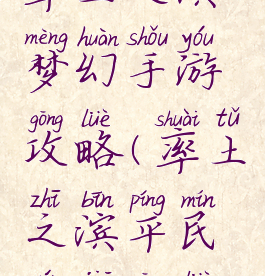 mèng huàn shǒu yóu
梦幻手游
gōng lüè shuài tǔ
攻略(率土
zhī bīn píng mín
之滨平民